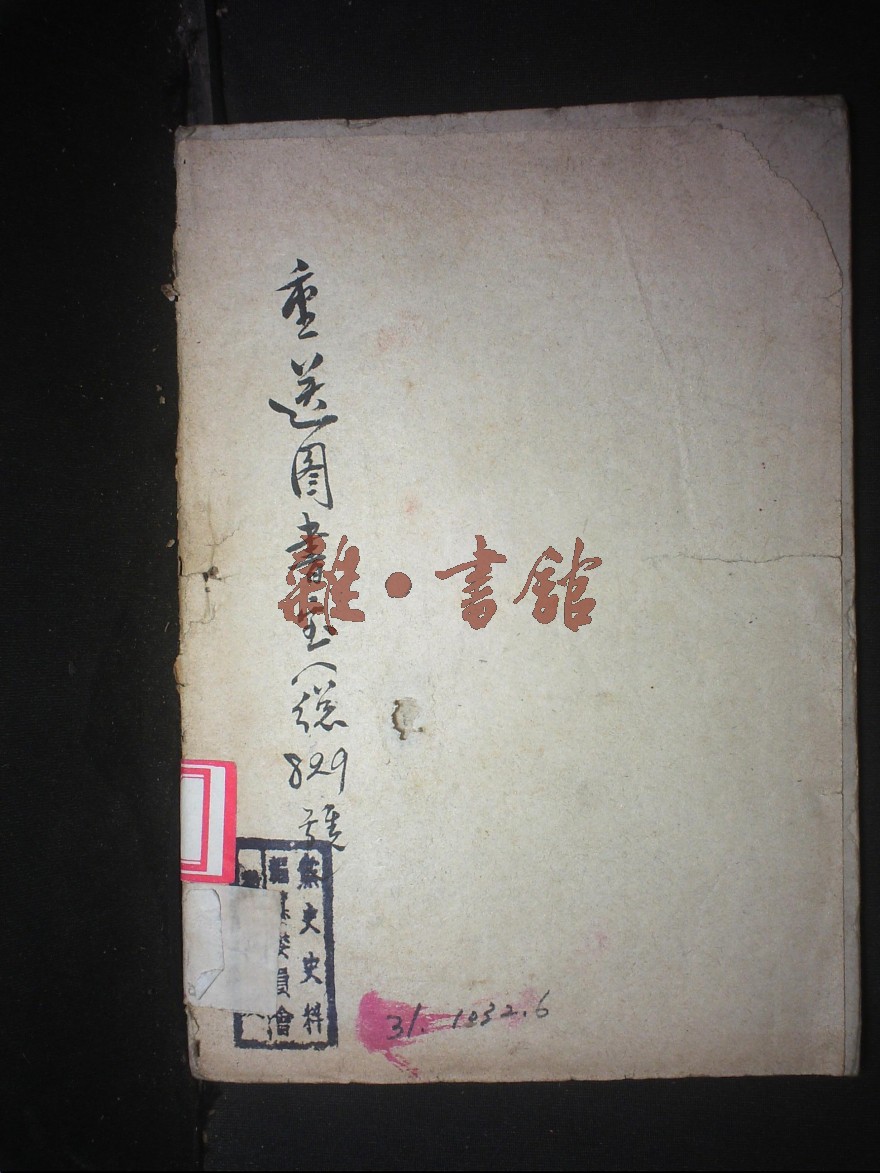 重送图書室(總829號
雜·書館
黨史史料
編纂委員會
31. 1932.6